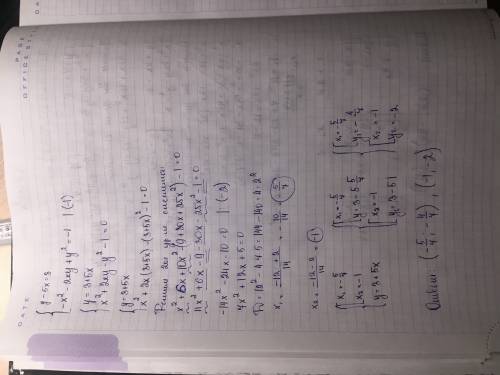 DATE
{ y - 5x = 3
{ -x² - 2xy + y² = -1 | (-1)
{ y = 3 + 5x
{ x² + 2xy - y² - 1 = 0
{ y = 3 + 5x
{ x² + 2x(3+5x) - (3+5x)² - 1 = 0
Решим 2ое ур-ие системы:
x² + 6x + 10x² - (9 + 30x + 25x²) - 1 = 0
11x² + 6x - 9 - 30x - 25x² - 1 = 0
-14x² - 24x - 10 = 0 | : (-2)
7x² + 12x + 5 = 0
D = 12² - 4·7·5 = 144 - 140 = 4 = 2²
x₁ = (-12 + 2)/14 = -10/14 = -5/7
x₂ = (-12 - 2)/14 = -1
{ [ x₁ = -5/7 { [ x₁ = -5/7 { [ x₁ = -5/7
x₂ = -1 y = 3 - 5·5/7 y₁ = -4/7
y = 3 + 5x x₂ = -1 x₂ = -1
y = 3 - 5·1 y₂ = -2
Ответ: (-5/7; -4/7), (-1; -2)
PAGE